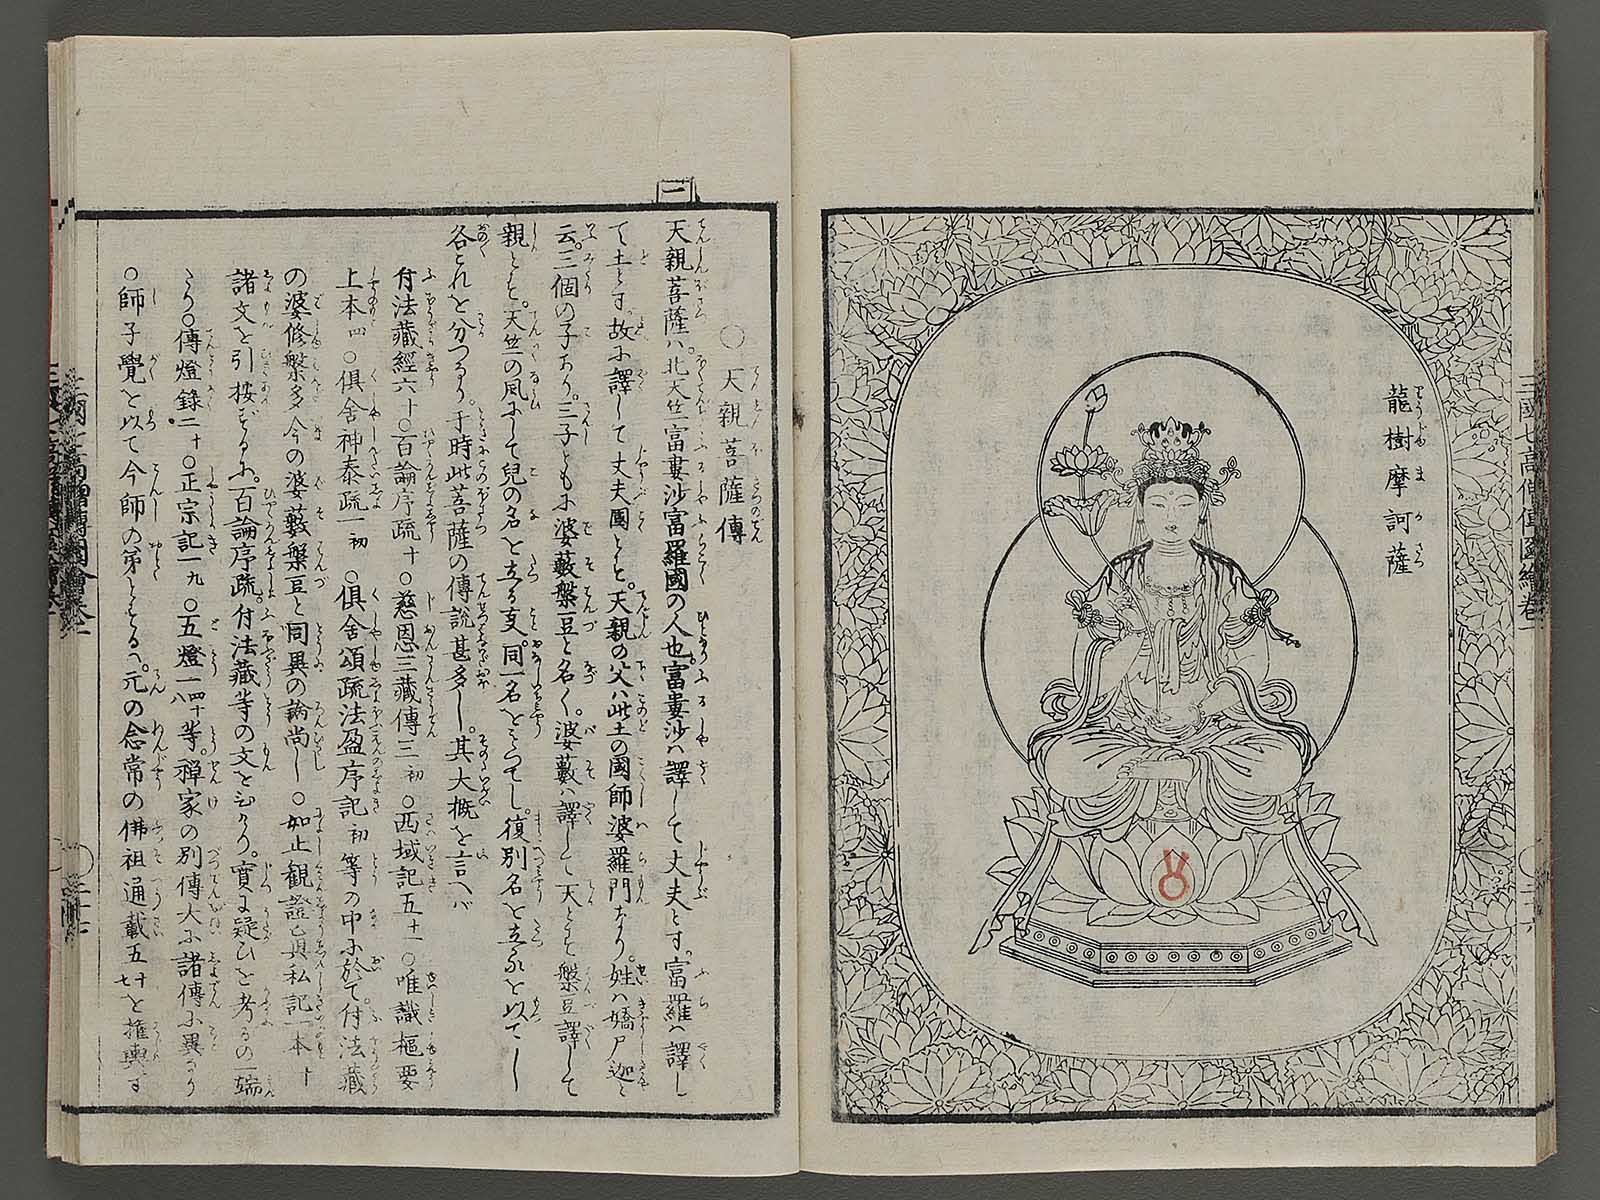 龍樹摩訶薩
三國七高僧傳圖繪卷一
○天親菩薩傳
天親菩薩ハ北天竺富婁沙富羅國の人也富婁沙ハ譯して丈夫とす。富羅ハ譯し
て土とす故に譯して丈夫國とも。天親の父ハ此土の國師婆羅門なり。姓ハ嬌尸迦と
云。三個の子あり。三子ともに婆藪槃豆と名く。婆藪ハ譯して天とも槃豆譯して
親とも。天竺の風にして兒の名を立る支。同一名をもつてし。復別名を立るを以てし
各これを分つなり。于時此菩薩の傳説甚多し。其大概を言ヘバ
付法藏經六ノ十○百論序疏十○慈恩三藏傳三初○西域記五十一○唯識樞要
上本四○倶舍神泰疏一初○倶舍頌疏法盈序記初等の中に於て。付法藏
の婆修槃多今の婆藪槃豆と同異の論尚し○如止観證眞私記一本十
諸文を引按ずるに。百論序疏。付法藏等の文を
実に疑ひを考るの一端
なり○傳燈錄二十○正宗記一九○五燈一四十八等。禅家の別傳大に諸傳に異なり
○師子覺を以て今師の弟とする。元の念常の佛祖通載五十七を推輿す